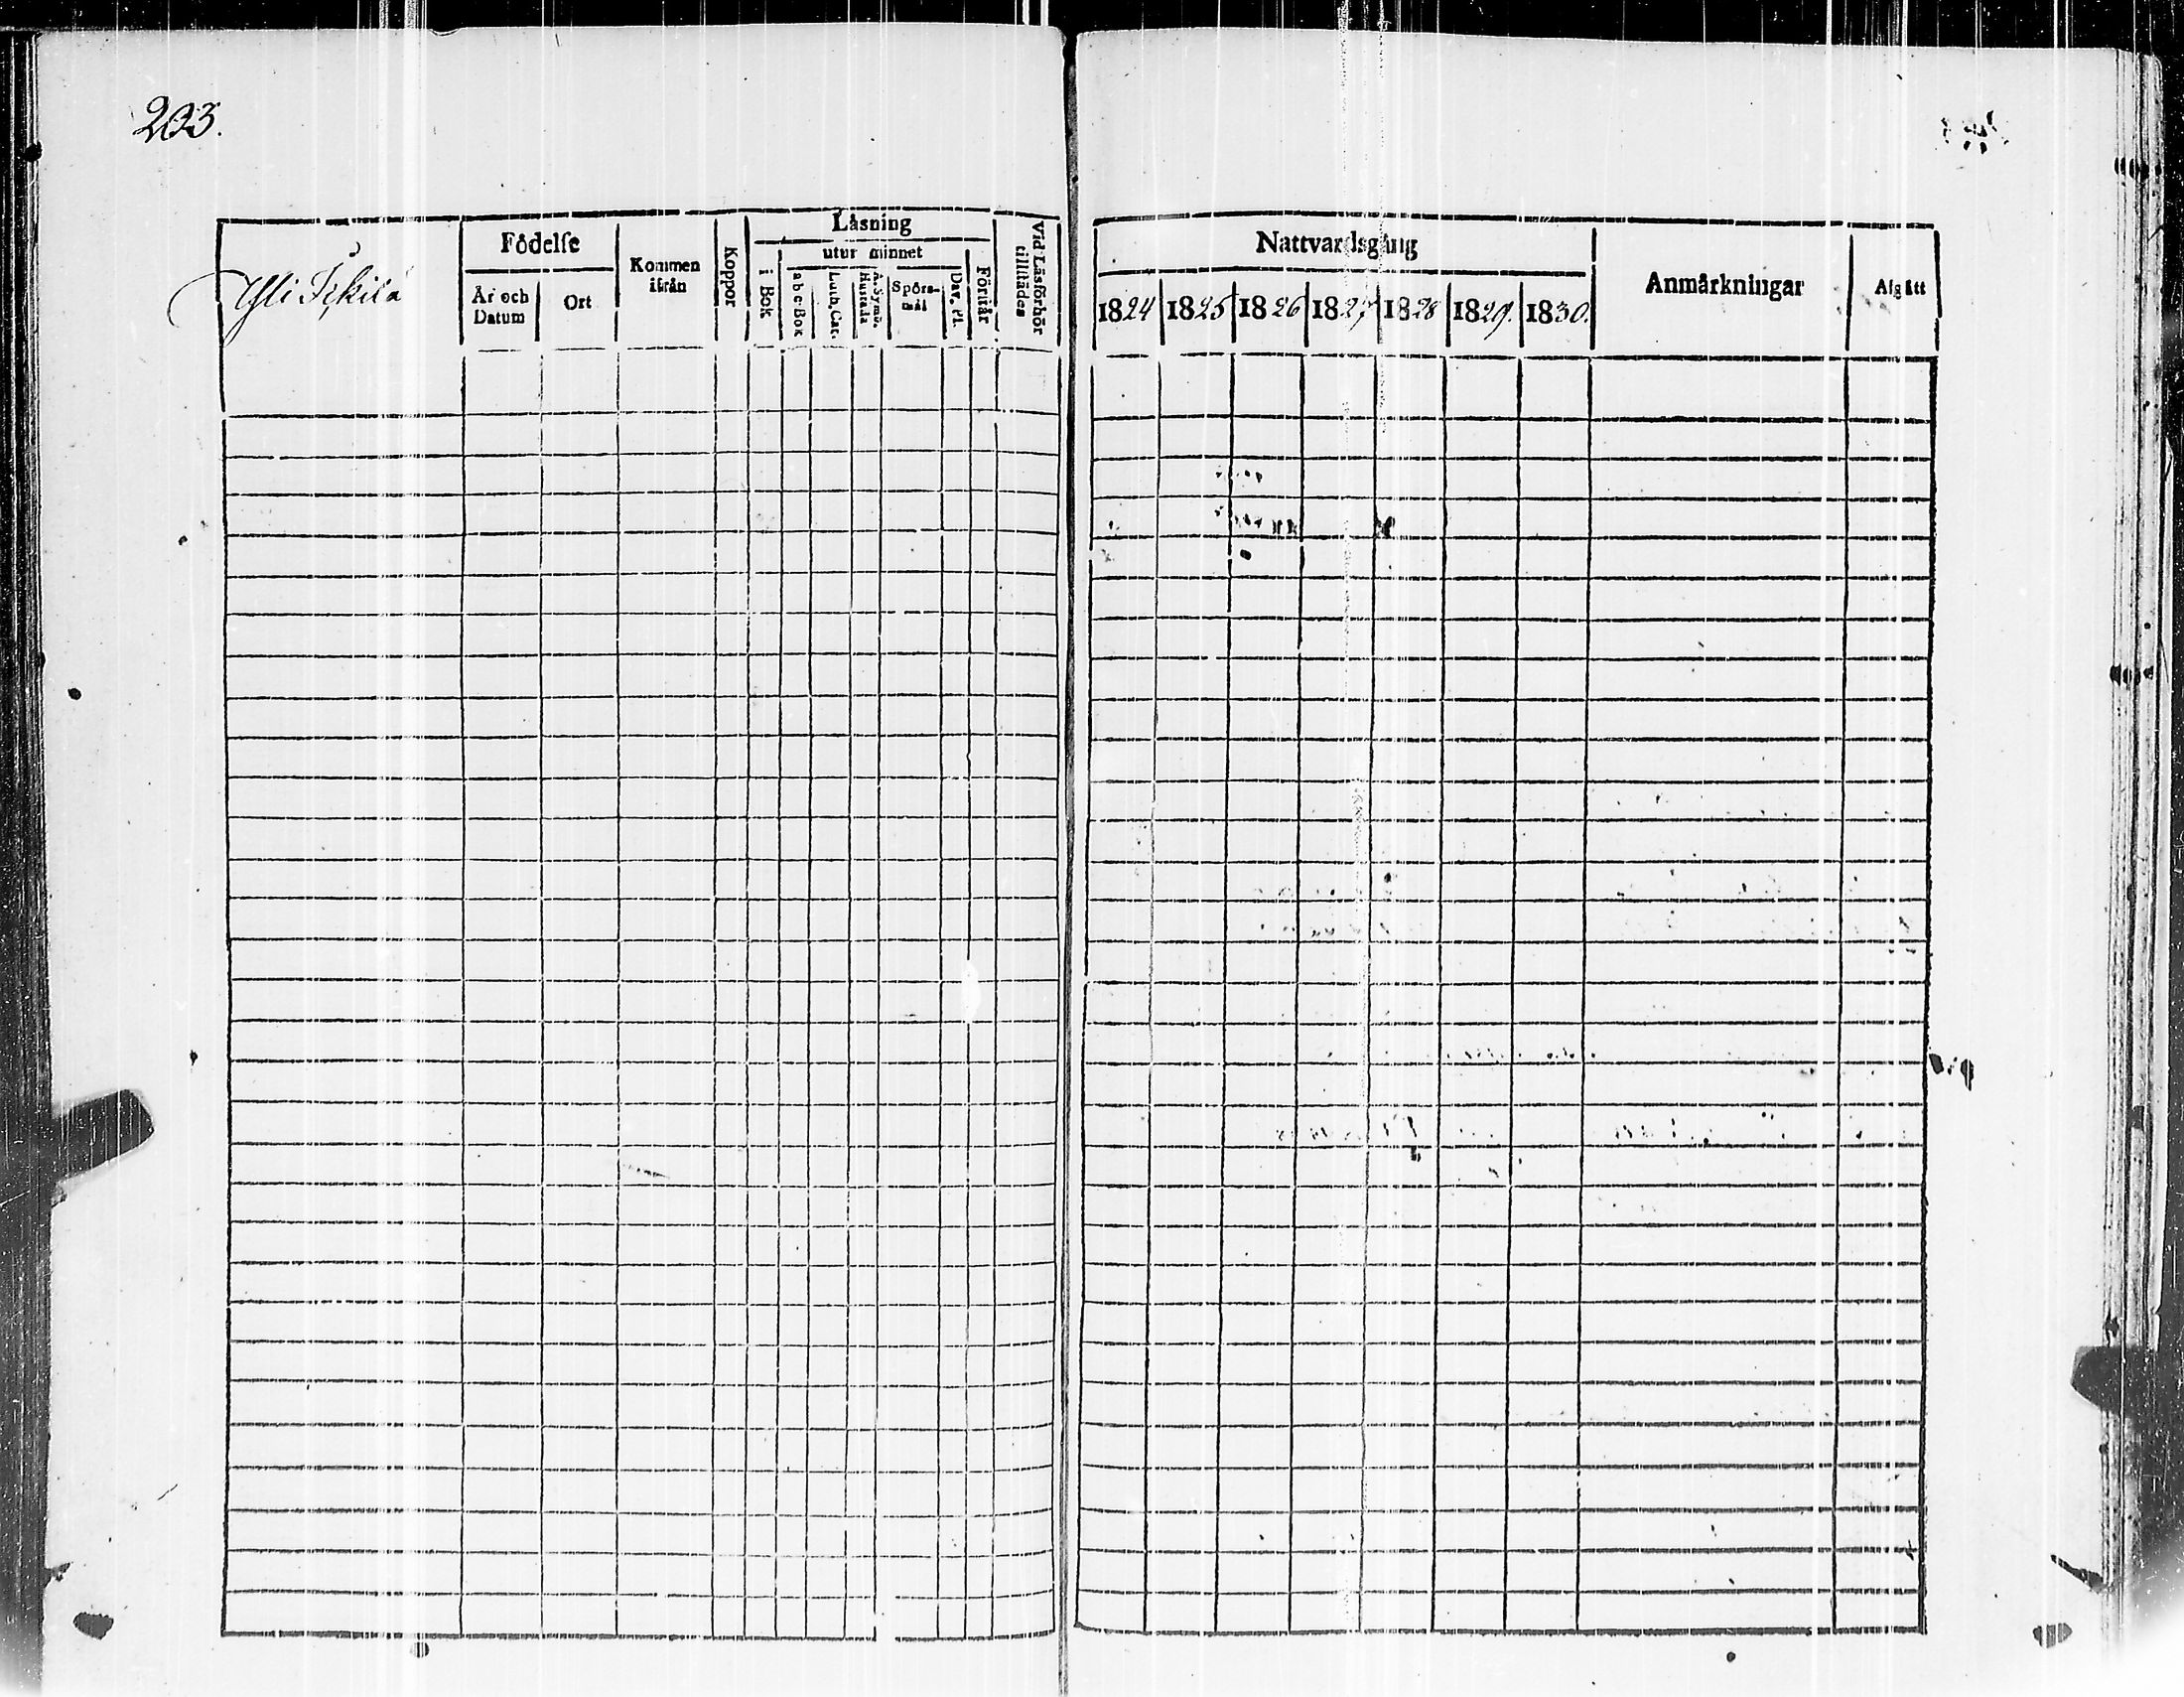 203.
Yli Ickilä
Födelse
År och Datum
Ort
Kommen ifrån
Koppor
Läsning
i Bok
utur minnet
a b c-Bok
Luth. Cat.
A. Symb. Hustafla
Spörsmål
Dav. Ps.
Förstår
Vid Läsförhör tillstädes
Nattvardsgång
1824 1825 1826 1827 1828 1829. 1830.
Anmärkningar
Afgått